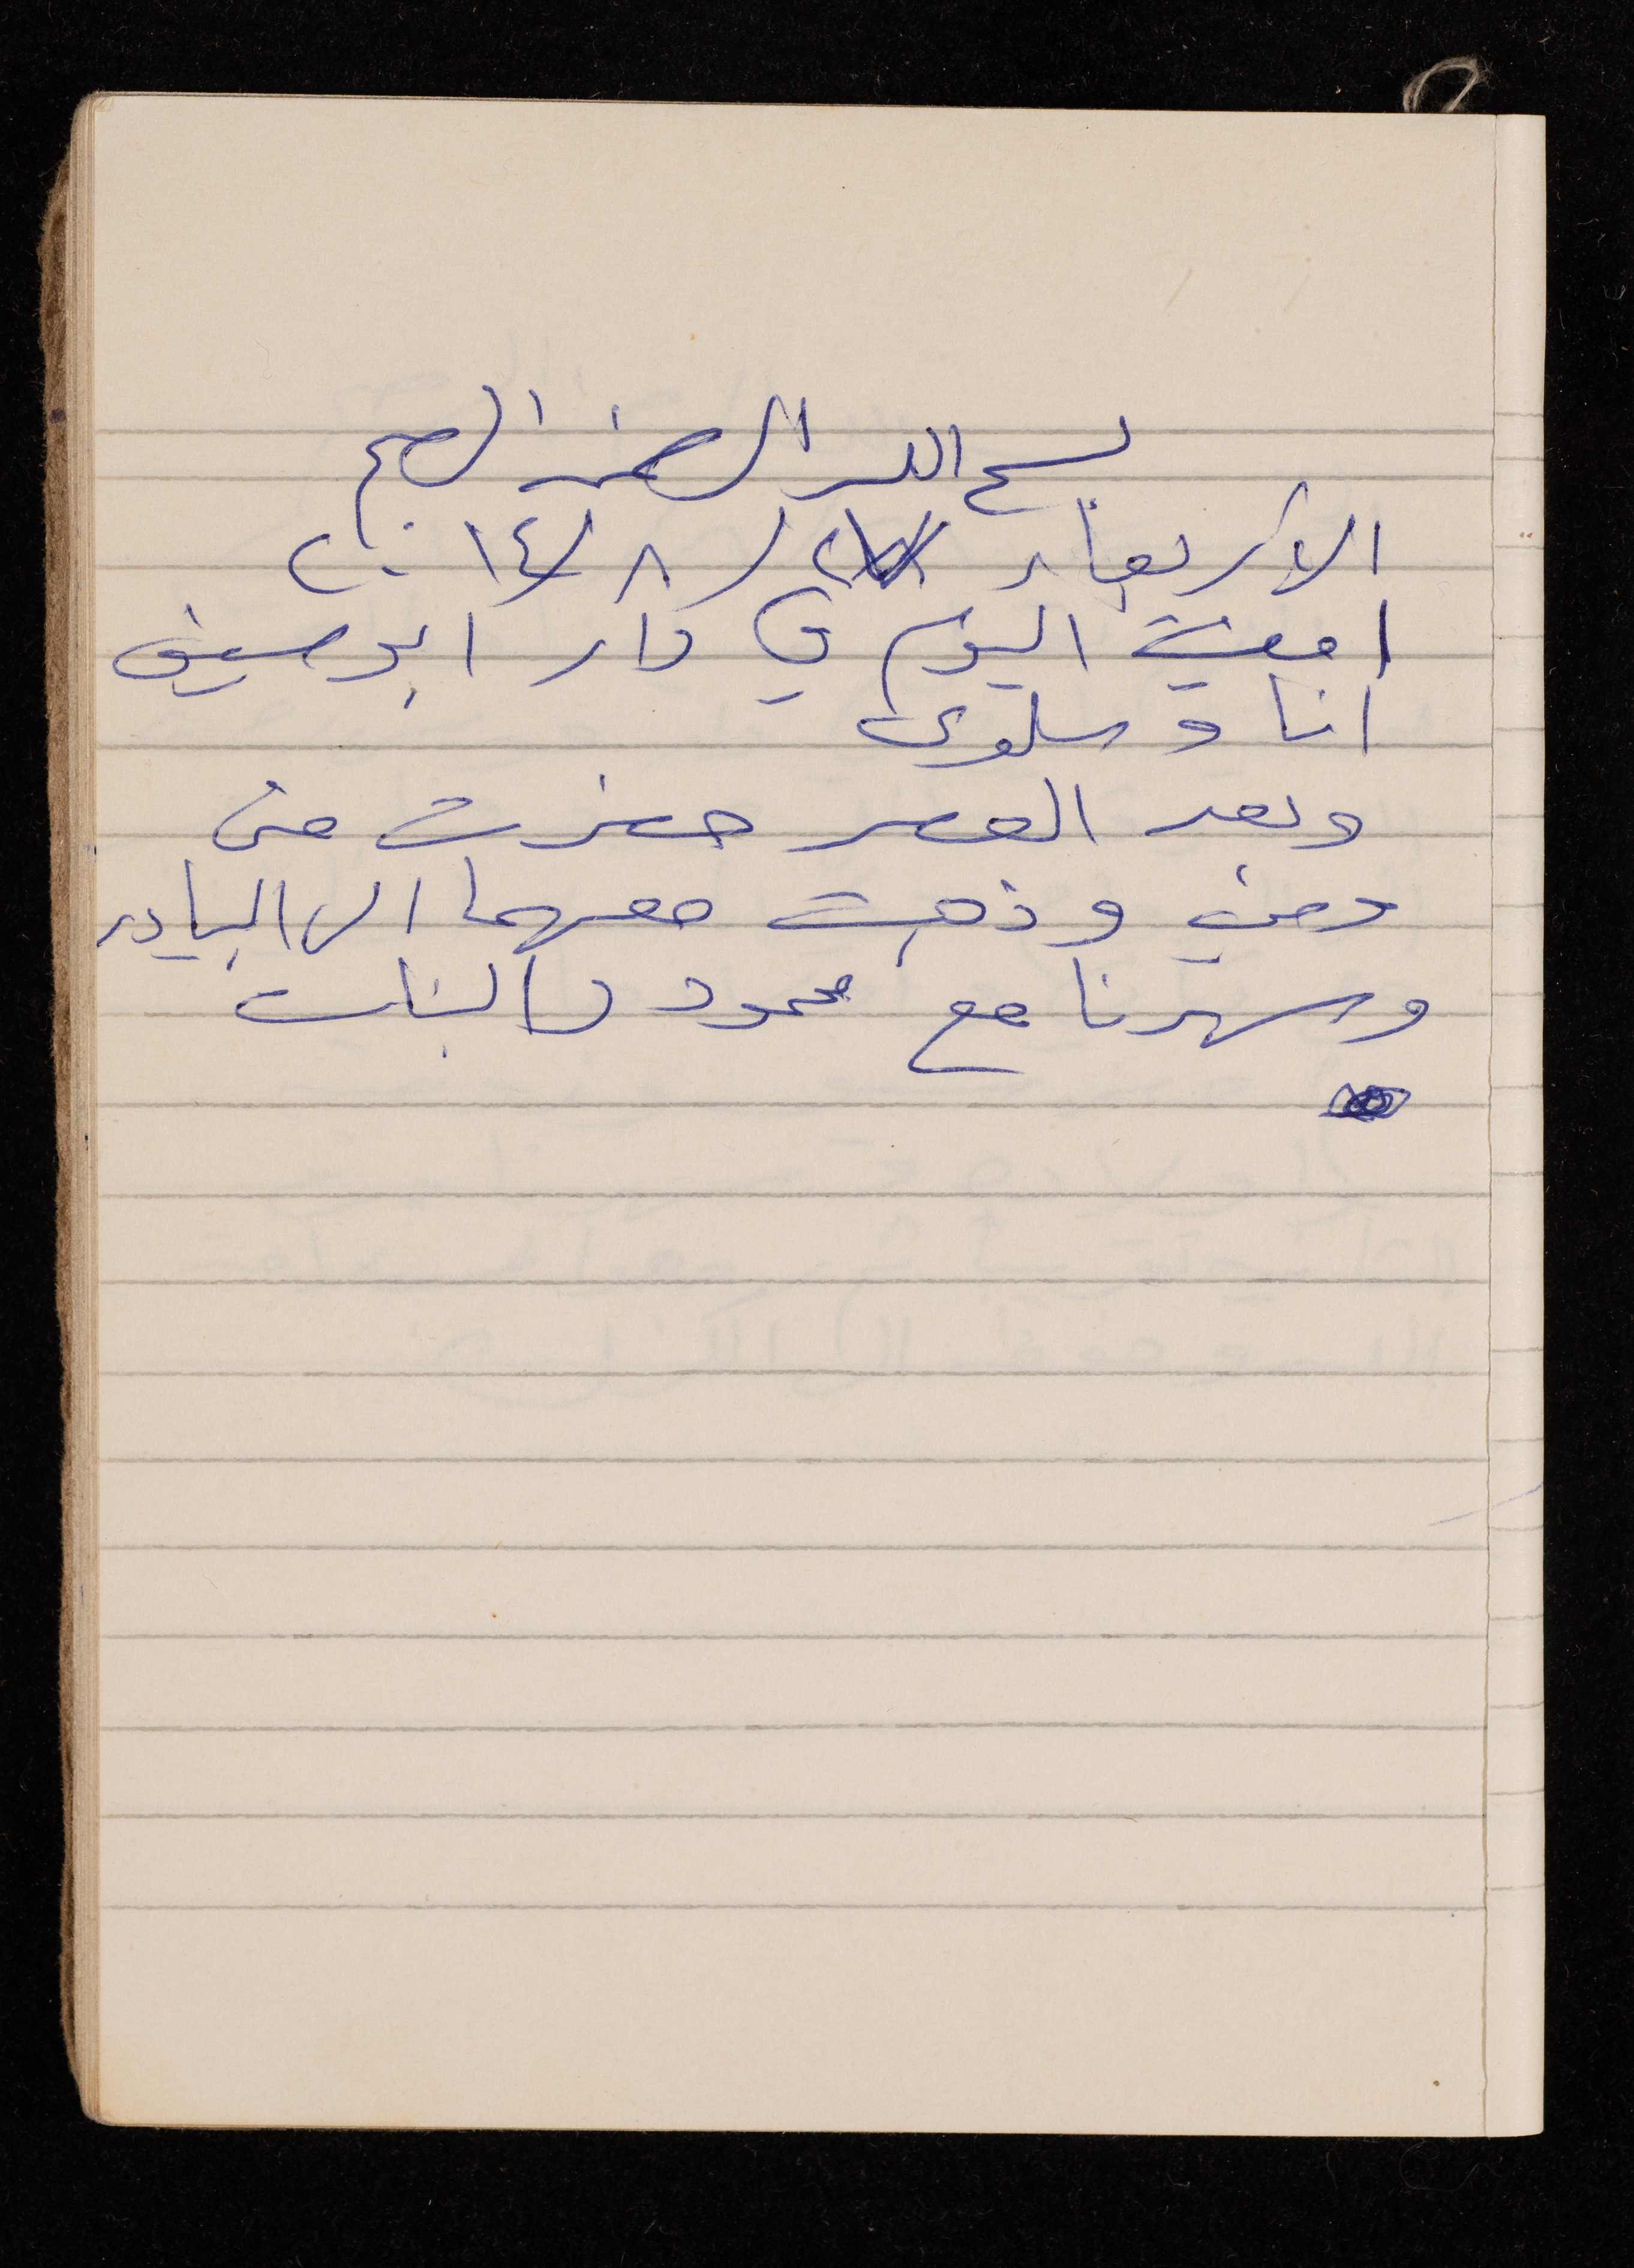 بسم الله الرحمن الرحيم
الأربعاء / ٨ / ٢٠١٤
امضيت اليوم في دار ابو
انا و سلوى
وبعد العصر حضرت
وذهبت معهما الى البيادر
وسهرنا مع محمود والبنات